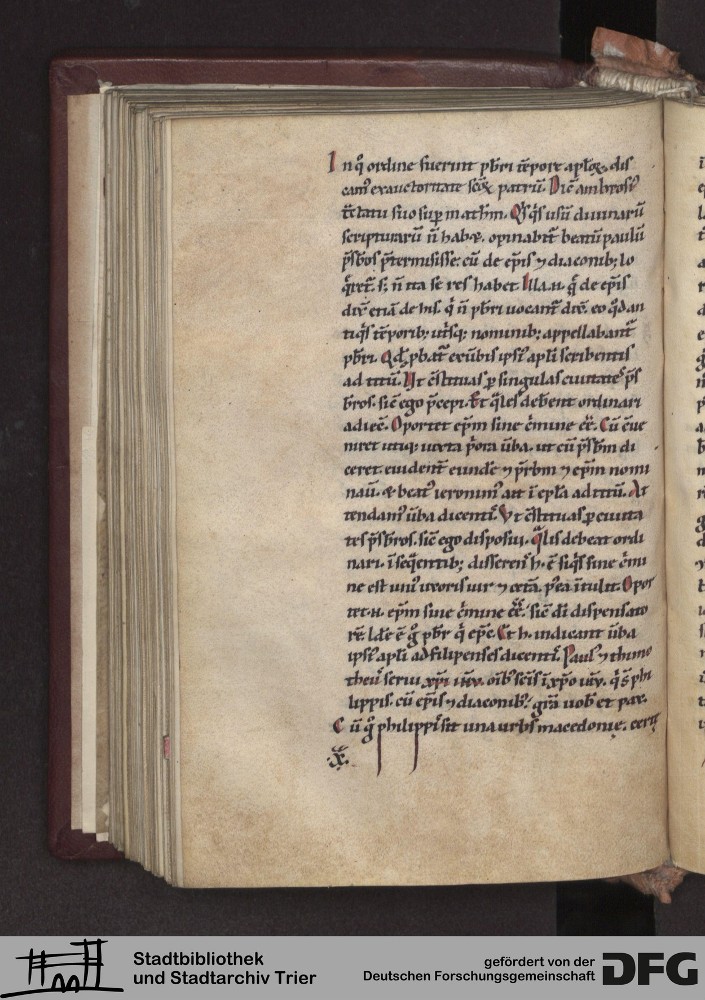 In q̊ ordine fuerint pb̄ri tēpore aplo͞ꝝ dis
cam᷒ ex auctoritate sc̄oꝝ patrū. Dic̄ ambrosi᷒
t̄ctatu suo sup̄ math̄m. Q̄s q̄s usū diuinarū
scripturarū n̄ habꝫ. opinabit᷑ beatū paulū
p̄sb̄os p̄termisisse: cū de ep̄is ⁊ diaconibꝫ lo
q̄ret᷑. s; n̄ ita se res habet. Illa .n. q̄ de ep̄is
dix̄ etiā de his. q̄ n̄ pb̄ri uocant᷑ dix̄. eo q̊d an
tiq̄s tēporibꝫ utisq; nominibꝫ appellabant᷑
pb̄ri. Qd̄ ꝓbat᷑ ex ūbis ipsi᷒ apl̄i scribentis
ad titū. Ut c̄stituas ꝑ singulas ciuitates p̄s
b̄ros. sic̄ ego p̄cepi. Et q̄les deb̄ent ordinari
adiec̄. Oportet ep̄m sine c̄mine ee̅. Cū c̄ue
niret utiq; iuxta p̄ora ūba. ut cū p̄sb̄m di
ceret. euident᷑ eundē ⁊ p̄rbm ⁊ ep̄m nomi
nau᷑. & beat᷒ ieronim᷒ ait ī epl̄a ad titū. At
tendam᷒ ūba dicentis. Vt c̄stituas ꝑ ciuita
tes p̄sb̄ros. sic̄ ego disposui. Q̄lis debeat ordi
nari. ī seq̄entibꝫ disserens h. ē siq̄s sine c̄mi
ne est uni᷒ uxoris uir ⁊ cetā. p᷒ea ītulit. Opor
tet .n. ep̄m sine c̄mine ee̅. sic̄ dī dispensato
rē. Idē ē g̊ pb̄r q̄ ep̄c. Et h. indicant ūba
ipsi᷒ apl̄i ad filipenses dicentis. Paul᷒ ⁊ thimo
theu᷒ serui xp̄i ih̄u. oīb᷒ sc̄is ī xp̄o ih̄u. q̄ s̄ phi
lippis. cū ep̄is ⁊ diaconib᷒. grā uob᷒ et pax.
Cū g̊ philippi sit una urbs macedonie. certe
.x.
Stadtbibliothek
und Stadtarchiv Trier
gefördert von der
Deutschen Forschungsgemeinschaft
DFG